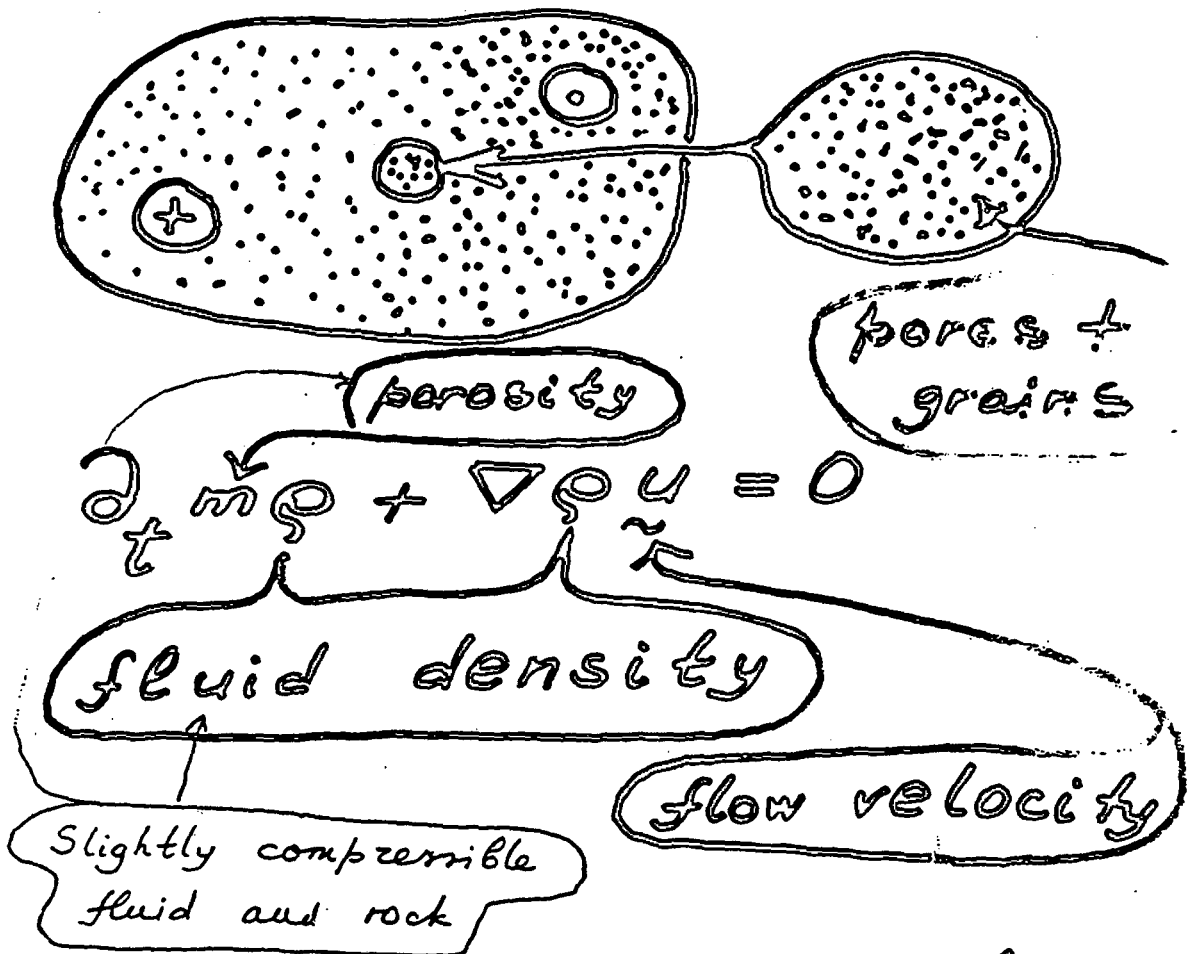 pores +
grains
porosity
∂t mρ + ∇ρu = 0
fluid density
flow velocity
Slightly compressible
fluid and rock